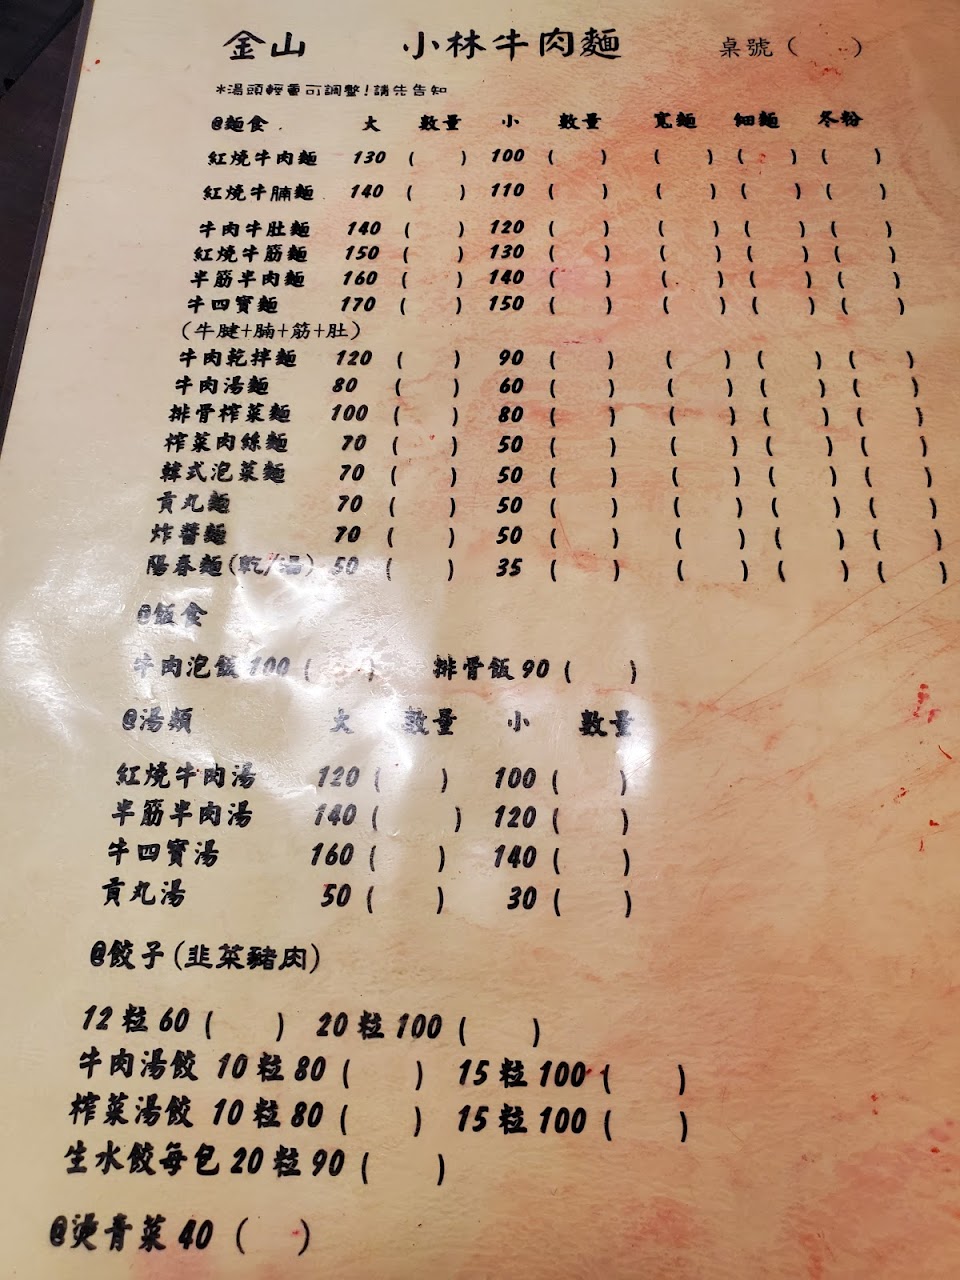 金山 小林牛肉麵 桌號( )
*湯頭輕重可調整!請先告知
@麵食. 大 數量 小 數量 寬麵 細麵 冬粉
紅燒牛肉麵 130 ( ) 100 ( ) ( ) ( ) ( )
紅燒牛腩麵 140 ( ) 110 ( ) ( ) ( ) ( )
牛肉牛肚麵 140 ( ) 120 ( ) ( ) ( ) ( )
紅燒牛筋麵 150 ( ) 130 ( ) ( ) ( ) ( )
半筋半肉麵 160 ( ) 140 ( ) ( ) ( ) ( )
牛四寶麵 170 ( ) 150 ( ) ( ) ( ) ( )
(牛腱+腩+筋+肚)
牛肉乾拌麵 120 ( ) 90 ( ) ( ) ( ) ( )
牛肉湯麵 80 ( ) 60 ( ) ( ) ( ) ( )
排骨榨菜麵 100 ( ) 80 ( ) ( ) ( ) ( )
榨菜肉絲麵 70 ( ) 50 ( ) ( ) ( ) ( )
韓式泡菜麵 70 ( ) 50 ( ) ( ) ( ) ( )
貢丸麵 70 ( ) 50 ( ) ( ) ( ) ( )
炸醬麵 70 ( ) 50 ( ) ( ) ( ) ( )
陽春麵(乾/湯) 50 ( ) 35 ( ) ( ) ( ) ( )
@飯食
牛肉泡飯 100 ( ) 排骨飯 90 ( )
@湯類 大 數量 小 數量
紅燒牛肉湯 120 ( ) 100 ( )
半筋半肉湯 140 ( ) 120 ( )
牛四寶湯 160 ( ) 140 ( )
貢丸湯 50 ( ) 30 ( )
@餃子(韭菜豬肉)
12粒60 ( ) 20粒100 ( )
牛肉湯餃 10粒80 ( ) 15粒100 ( )
榨菜湯餃 10粒80 ( ) 15粒100 ( )
生水餃每包20粒90 ( )
@燙青菜 40 ( )